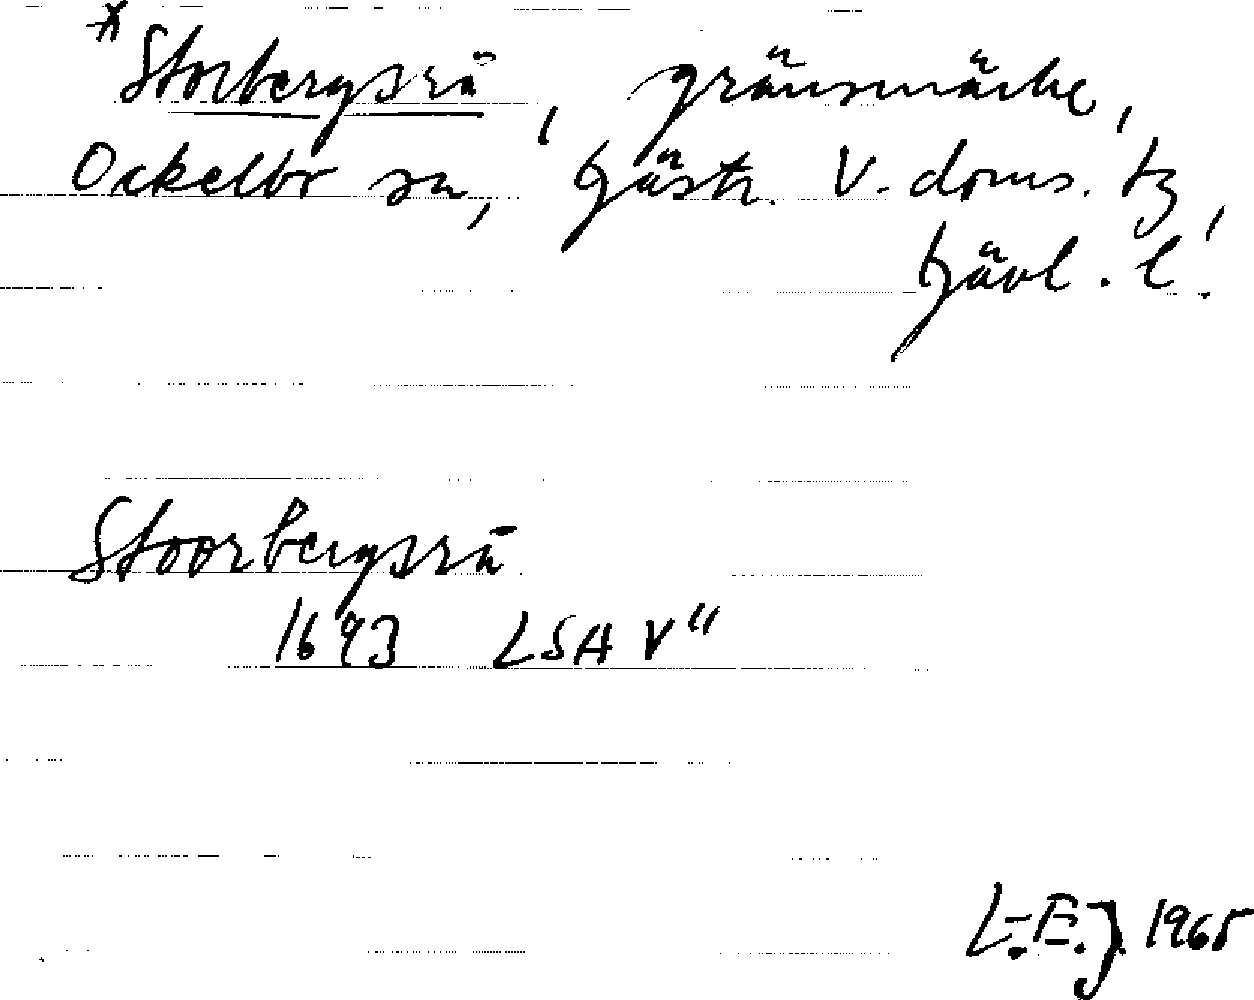 *Storbergsrå, gränsmärke,
Ockelbo sn, Gästr. V. doms. tg,
Gävl. l.
Stoorbergsrå
1693 LSA V"
L.E.J. 1965